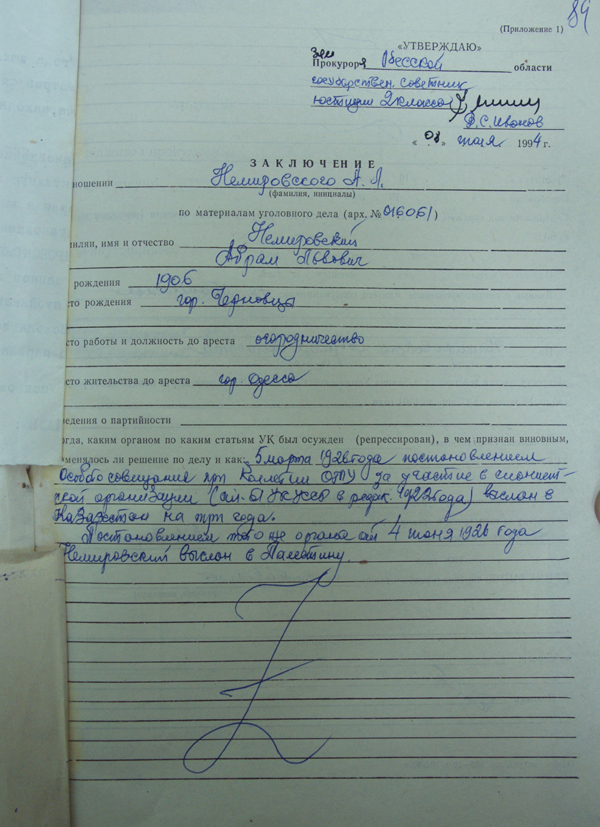 84
(Приложение 1)
«УТВЕРЖДАЮ»
Зам
Прокурора Одесской области
государствен. советник
юстиции 2 класса
В.С. Иванов
« 01 » июня 1994 г.
ЗАКЛЮЧЕНИЕ
ношении Немировского А. Л.
(фамилия, инициалы)
по материалам уголовного дела (арх. № 016061)
милия, имя и отчество Немировский
Абрам Львович
рождения 1906
сто рождения гор. Черновцы
сто работы и должность до ареста огородничество
сто жительства до ареста гор. Одесса
ведения о партийности
огда, каким органом по каким статьям УК был осужден (репрессирован), в чем признан виновным,
менялось ли решение по делу и как: 5 марта 1926 года постановлением
Особого совещания при Коллегии ОГПУ за участие в сионист-
ской организации (ст. 61 УК УССР в редак. 1922 года) выслан в
Казахстан на три года.
Постановлением того же органа от 4 июня 1926 года
Немировский выслан в Палестину.